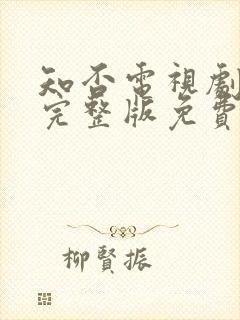 知否電視劇
完整版免費
柳賢振